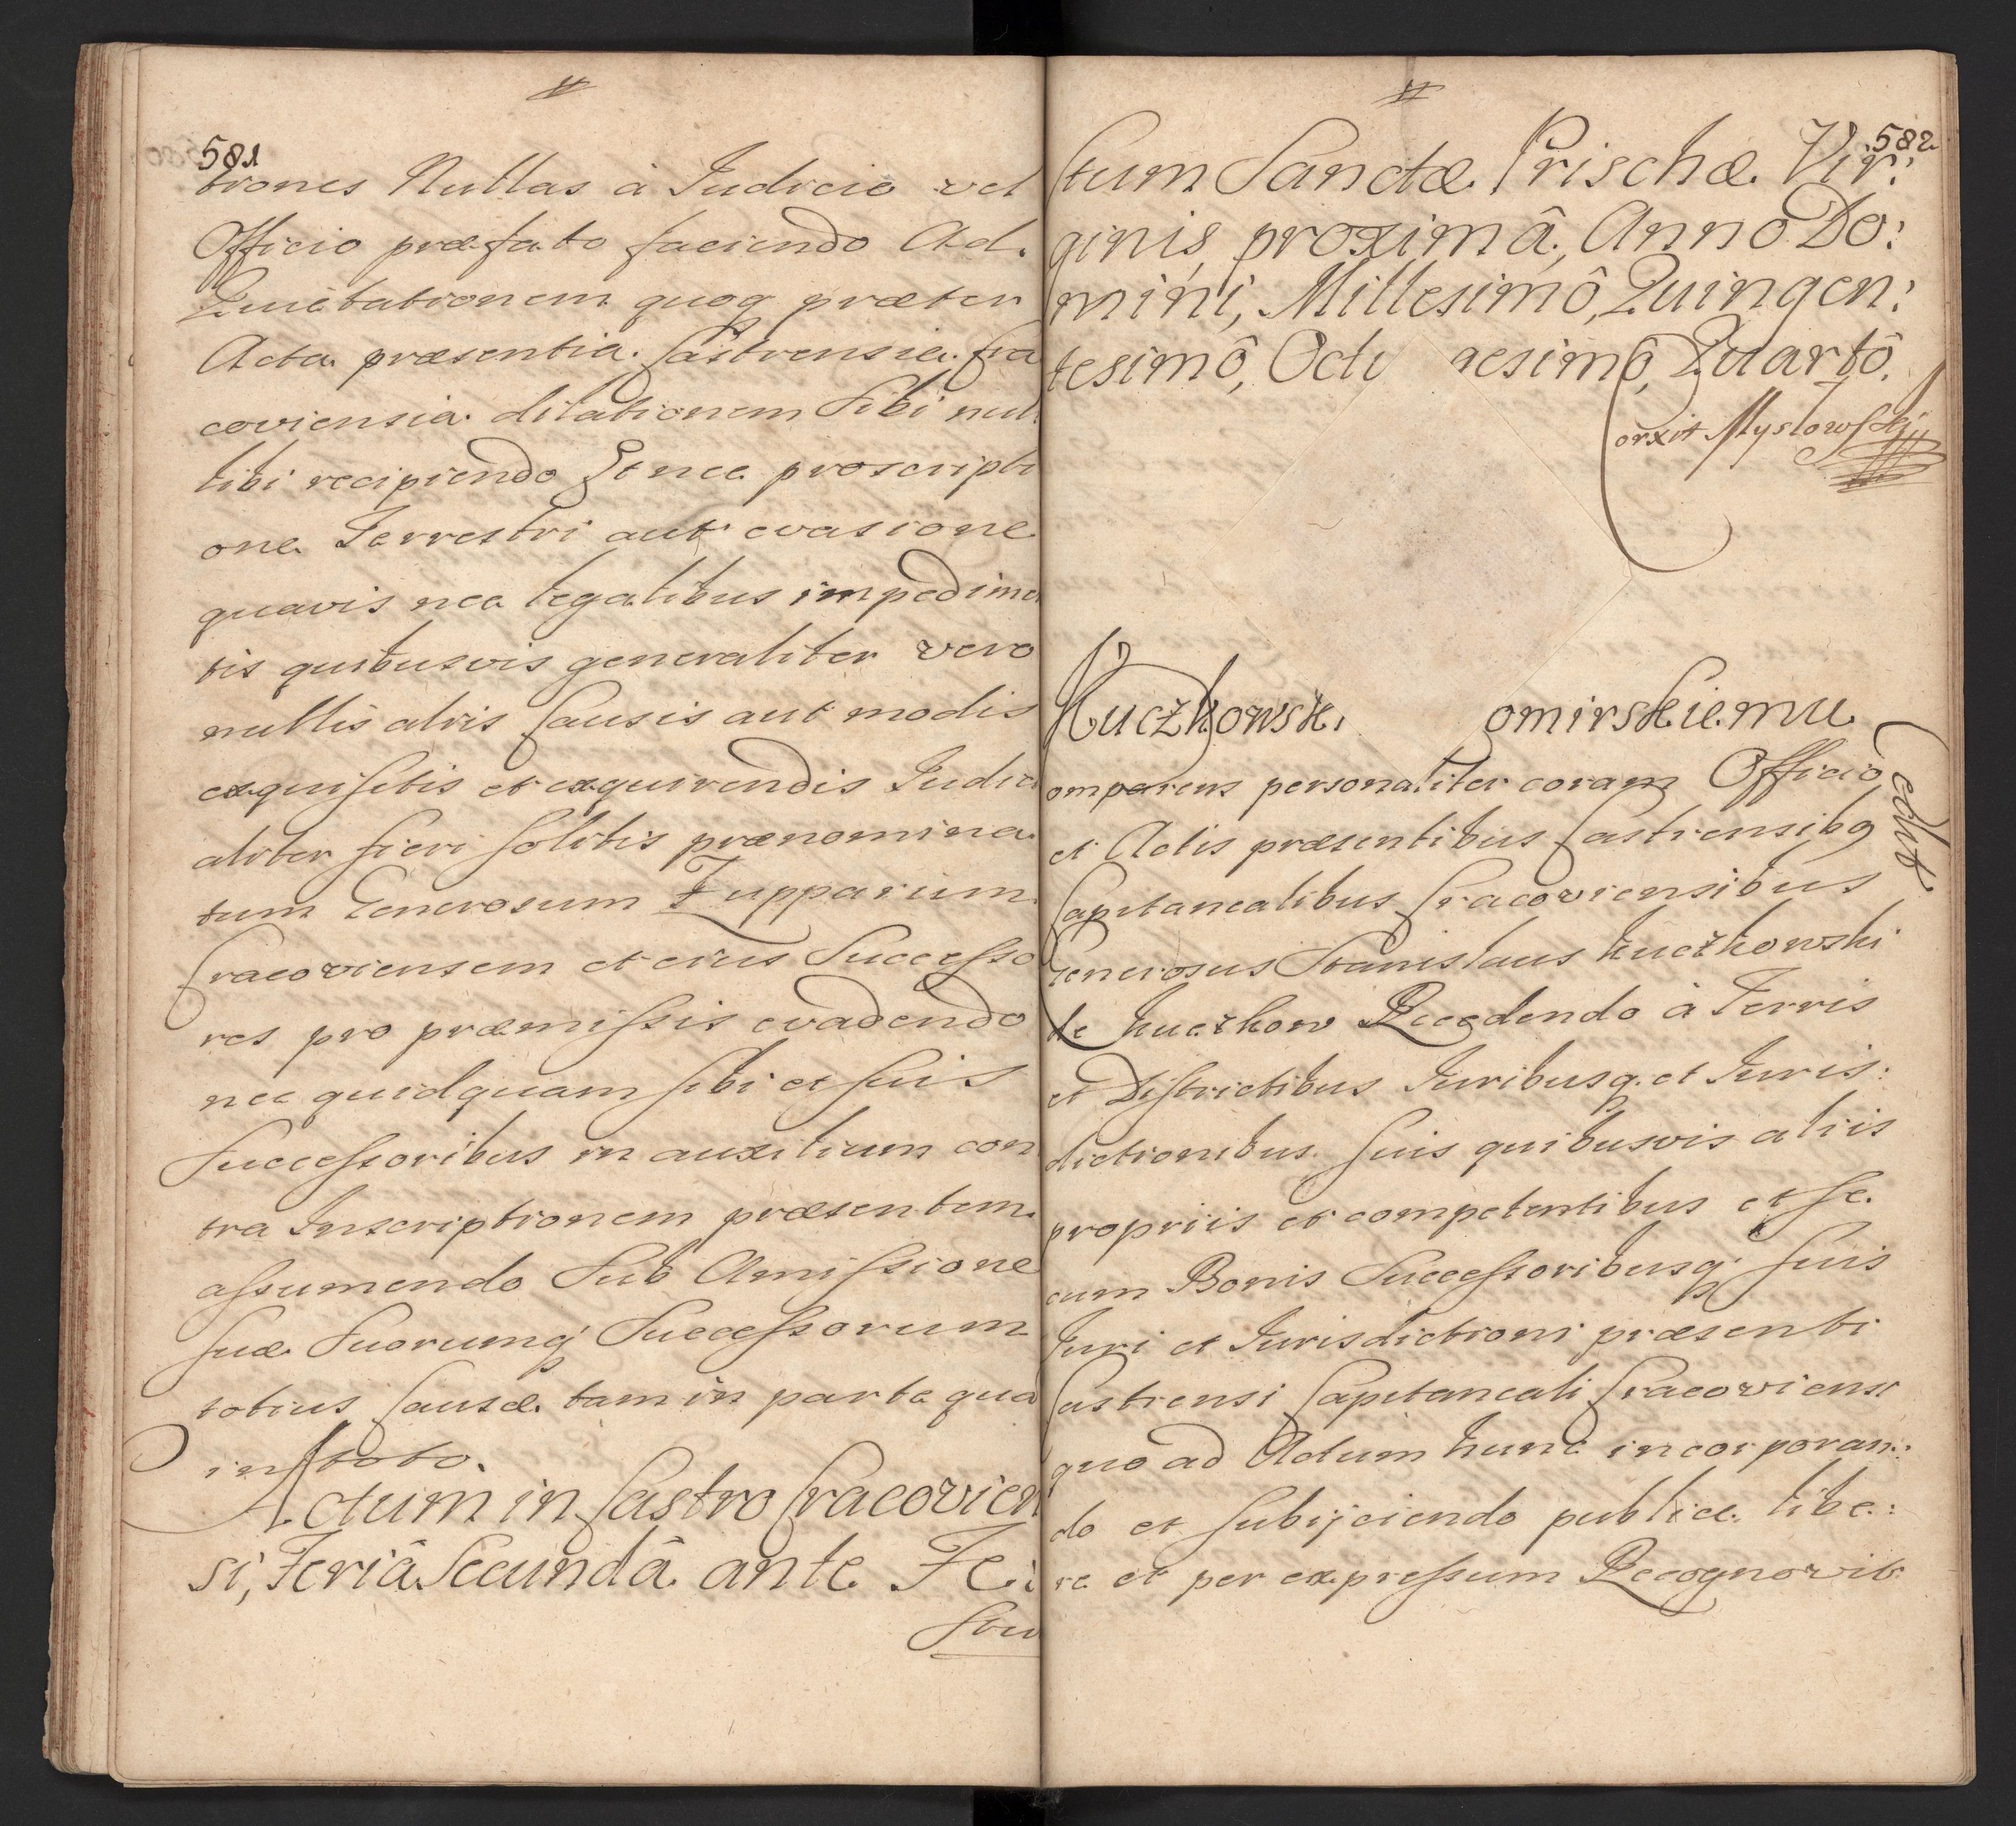 581
tiones Nullas à Iudicio vel
Officio præfato faciendo Ad.
Quietationem quoq præter
Acta præsentia Castrensia Cra
coviensia dilationem Sibi nul
libi recipiendo Et nec proscripti
one Terrestri aut evasione
quavis nec legalibus impedimen
tis quibusvis generaliter vero
nullis aliis Causis aut modis
exquisitis et exquirendis Iudici
aliter fieri solitis prænomina
tum Generosum Zupparium
Cracoviensem et eius Successo
res pro præmissis evadendo
nec quidquam sibi et suis
Successoribus in auxilium con
tra Inscriptionem præsentem
assumendo Sub Amissione
suæ Suorumq Successorum
totius Causæ tam in parte qua
in toto.
Actum in Castro Cracovien
si, Feriâ Secundâ ante Fe:
Stu
582
stum Sanctæ Prischæ Vir:
ginis proximâ, Anno Do:
mini, Millesimô, Quingen:
tesimô, Oct gesimô, Quartô.
Corxit Mysłowskj
Kuczkowski omirskiemu
omparens personaliter coram Officio
et Actis præsentibus Castrensibq
Capitanealibus Cracoviensibus
Generosus Stanislaus Kuczkowski
de Kuczkow Recedendo à Terris
et Districtibus Iuribusq. et Iuris:
dictionibus suis quibusvis aliis
propriis et competentibus et se
cum Bonis Successoribusq suis
Iuri et Iurisdictioni præsenti
Castrensi Capitaneali Cracoviensi
quo ad Actum hunc incorporan:
do et subijciendo publice libe:
re et per expressum Recognovit